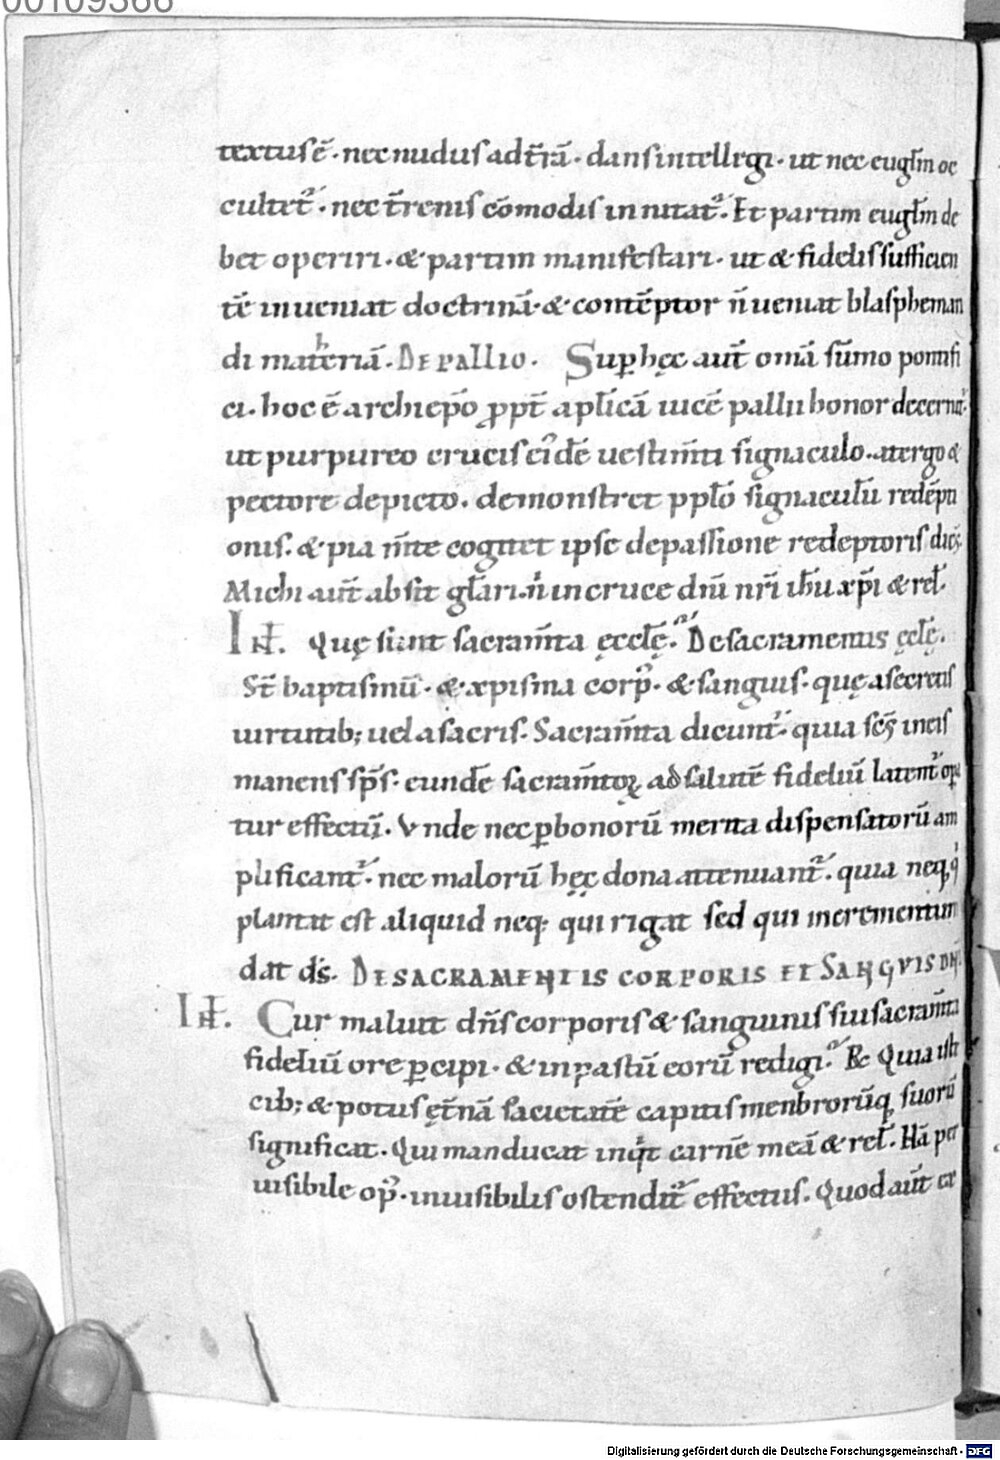 00109366
textus ē · nec nudus ad t̄rā · dans intellegi · ut nec eugl̄m oc
cultet᷑ · nec t̄renis cōmodis innitat᷑. Et partim eugl̄m de
bet operiri · & partim manifestari · ut & fidelis sufficien
tē inueniat doctrinā · & contēptor n̄ ueniat blaspheman
di mat̄eriā. DE PALLIO. Sup̱ hęc aut̄ omā sūmo pontifi
ci. hoc ē archiep̄o p̱p̱t̄ ap̄licā uicē pallii honor decernit᷑.
ut purpureo crucis ei᷑dē uestim̄ti signaculo. a tergo &
pectore depicto. demonstret pp̄lō signacul̄u redēpti
onis. & pia m̄te cogitet ipse de passione redeptoris dicēs.
Michi aut̄ absit gl̄ari. n̄ in cruce dn̄i nr̄i ih̄u xp̄i & rel̄.
INT. Quę sunt sacram̄ta ęccl̄ę. De sacramentis ęcl̄ę.
St̄ baptismū · & xpisma corp᷒ · & sanguis · quę a secretis
uirtutib; uel a sacris. Sacram̄ta dicunt᷑. quia sc̄s in eis
manens sp̄s. eundē sacram̄toꝝ ad salutē fideliū latent᷑ opa
tur effectū. Vnde nec p̱ bonorū merita dispensatorū am
plificant᷑. nec malorū hęc dona attenuant᷑. quia neq; q
plantat est aliquid neq; qui rigat sed qui incrementum
dat ds̄. DE SACRAMENTIS CORPORIS ET SANGVIS DN̄I.
INT. Cur maluit dn̄s corporis & sanguinis sui sacram̄ta
fideliū ore p̱cipi · & in pastū eorū redigi. R̄ Quia isti
cib; & potus ęt̄nā sacietatē capitis menbrorūq; suorū
significat. Qui manducat inqt̄ carnē meā & rel̄. Hā per
uisibile op᷒. inuisibilis ostendit᷑ effectus. Quod aut̄ ex
Digitalisierung gefördert durch die Deutsche Forschungsgemeinschaft - DFG